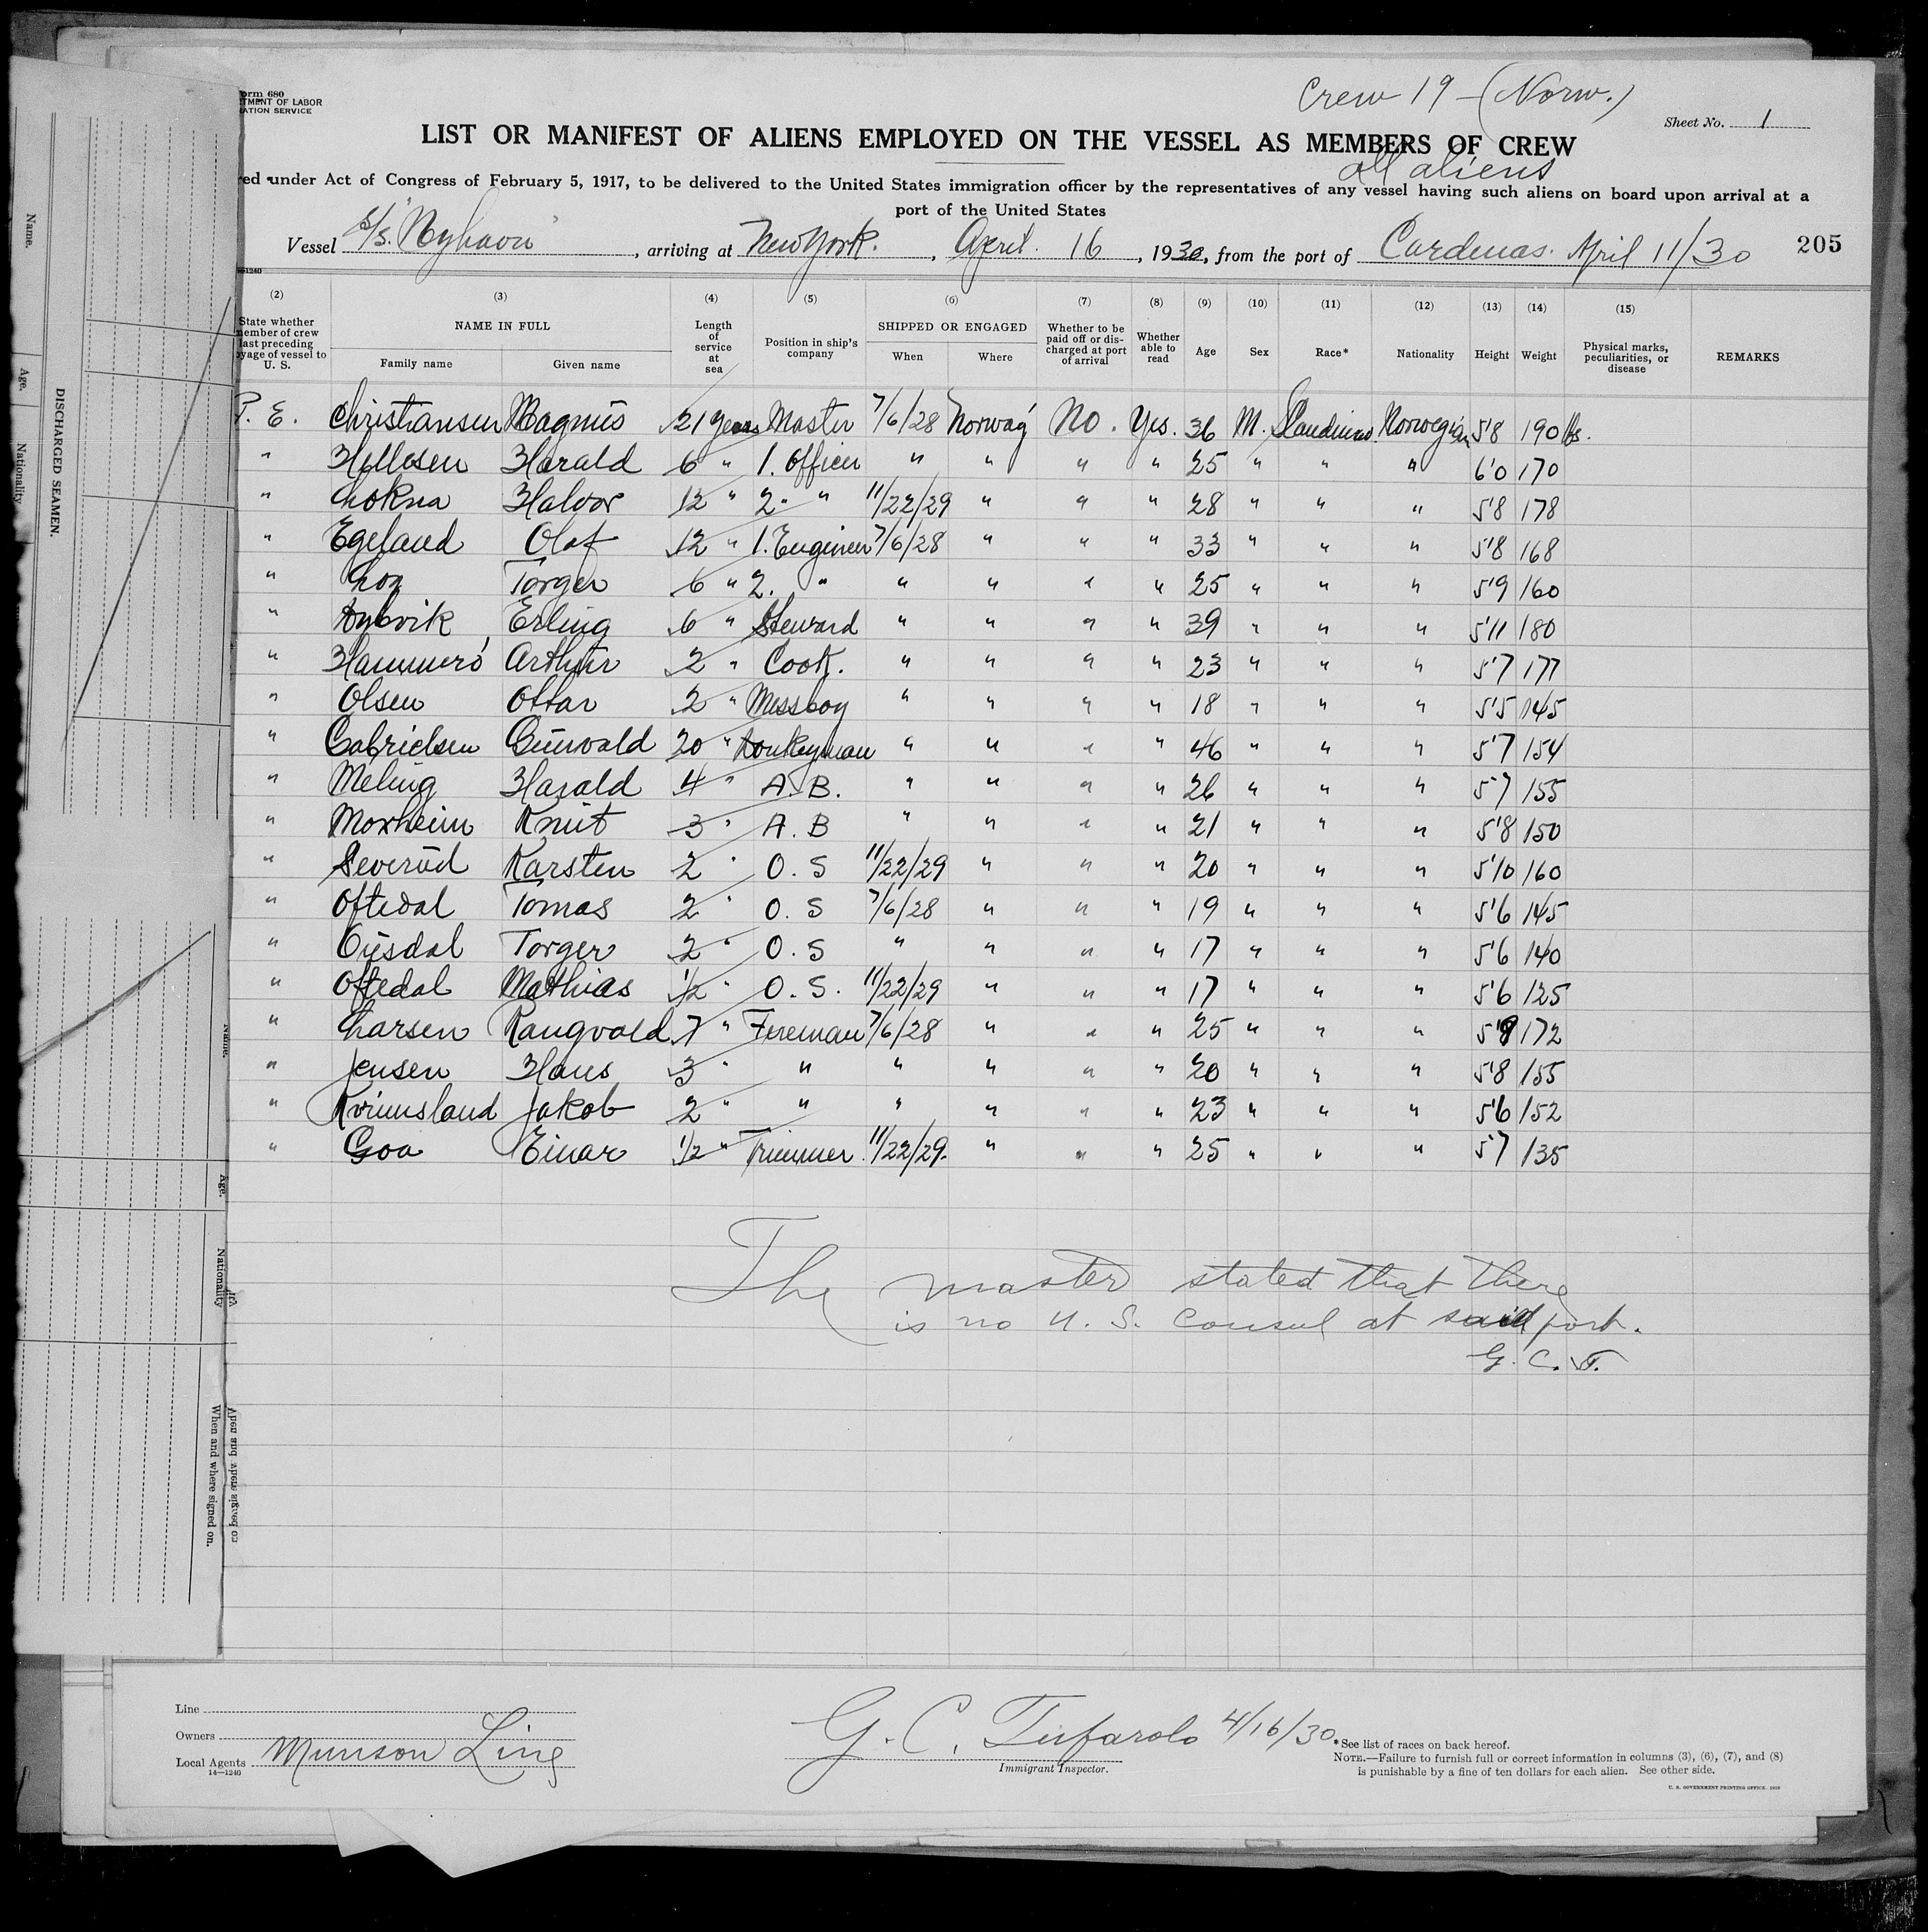 Crew 19 - (Norw.)
orm 680
TMENT OF LABOR
ATION SERVICE
Sheet No. 1
LIST OR MANIFEST OF ALIENS EMPLOYED ON THE VESSEL AS MEMBERS OF CREW
all aliens
red under Act of Congress of February 5, 1917, to be delivered to the United States immigration officer by the representatives of any vessel having such aliens on board upon arrival at a
port of the United States
Vessel S/s. "Nyhavn", arriving at New York., April. 16, 1930, from the port of Cardenas. April 11/30 205
(2) (3) (4) (5) (6) (7) (8) (9) (10) (11) (12) (13) (14) (15)
State whether member of crew last preceding voyage of vessel to U. S. NAME IN FULL Family name Given name Length of service at sea Position in ship's company SHIPPED OR ENGAGED When Where Whether to be paid off or discharged at port of arrival Whether able to read Age Sex Race* Nationality Height Weight Physical marks, peculiarities, or disease REMARKS
P. E. Christiansen Magnus 21 years Master 7/6/28 Norway No. Yes. 36 M. Scandinav. Norwegian 5'8 190 lbs.
" Hellesen Harald 6 " 1. Officer " " " " 25 " " " 6'0 170
" Lokna Halvor 12 " 2. " 11/22/29 " " " 28 " " " 5'8 178
" Egeland Olaf 12 " 1. Engineer 7/6/28 " " " 33 " " " 5'8 168
" Torger 6 " 2. " " " " " 25 " " " 5'9 160
" Dybvik Erling 6 " Steward " " " " 39 " " " 5'11 180
" Hammerö Arthur 2 " Cook. " " " " 23 " " " 5'7 177
" Olsen Ottar 2 " Messboy " " " " 18 " " " 5'5 145
" Gabrielsen Gunvald 20 " Donkeyman " " " " 46 " " " 5'7 154
" Meling Harald 4 " A.B. " " " " 26 " " " 5'7 155
" Moxheim Knut 3 " A.B " " " " 21 " " " 5'8 150
" Severud Karsten 2 " O.S 11/22/29 " " " 20 " " " 5'10 160
" Oftedal Tomas 2 " O.S 7/6/28 " " " 19 " " " 5'6 145
" Ousdal Torger 2 " O.S " " " " 17 " " " 5'6 140
" Oftedal Mathias 1/2 " O.S. 11/22/29 " " " 17 " " " 5'6 125
" Larsen Rangvald 7 " Fireman 7/6/28 " " " 25 " " " 5'9 172
" Jensen Hans 3 " " " " " " 20 " " " 5'8 155
" Kvinnsland Jakob 2 " " " " " " 23 " " " 5'6 152
" Goa Einar 1/2 " Trimmer. 11/22/29. " " " 25 " " " 5'7 135
The master stated that there
is no U. S. Consul at said port.
G. C. T.
Line
Owners
Local Agents Munson Line
14—1240
G. C. Tufarolo 4/16/30
Immigrant Inspector.
*See list of races on back hereof.
NOTE.—Failure to furnish full or correct information in columns (3), (6), (7), and (8)
is punishable by a fine of ten dollars for each alien. See other side.
U. S. GOVERNMENT PRINTING OFFICE: 1929
Name.
Age.
Nationality
DISCHARGED SEAMEN.
Name.
Age.
Nationality
When and where signed on.